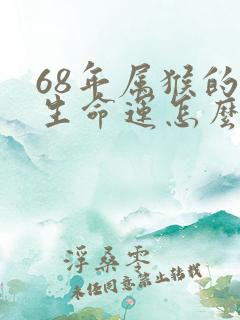 68年属猴的
生命运怎麽
浮桑零
未经同意禁止转载